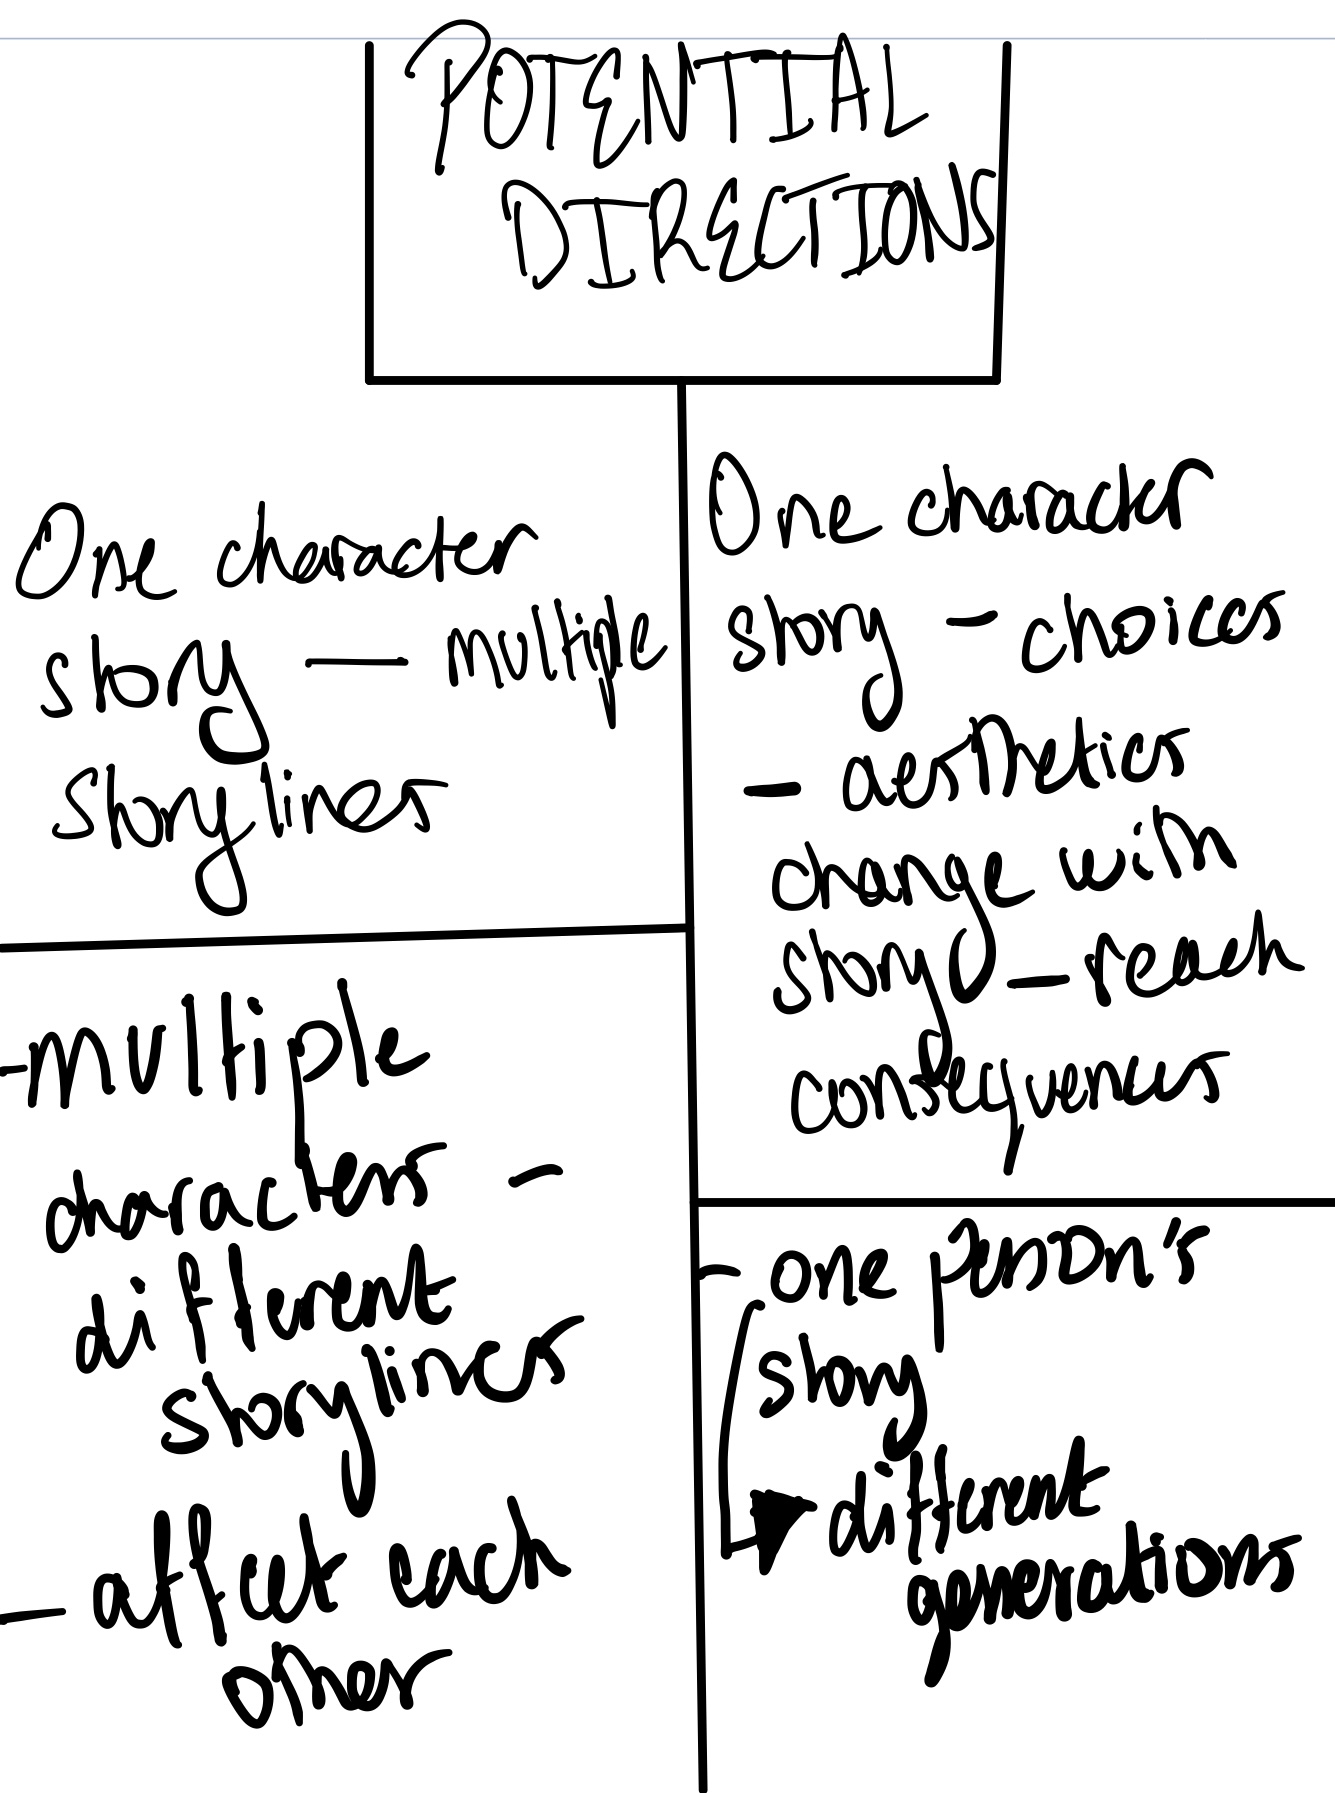 POTENTIAL
DIRECTIONS
One character
story — multiple
storylines
-multiple
characters -
different
storylines
- affect each
other
One character
story - choices
- aesthetics
change with
story - reach
consequences
- one person's
story
different
generations